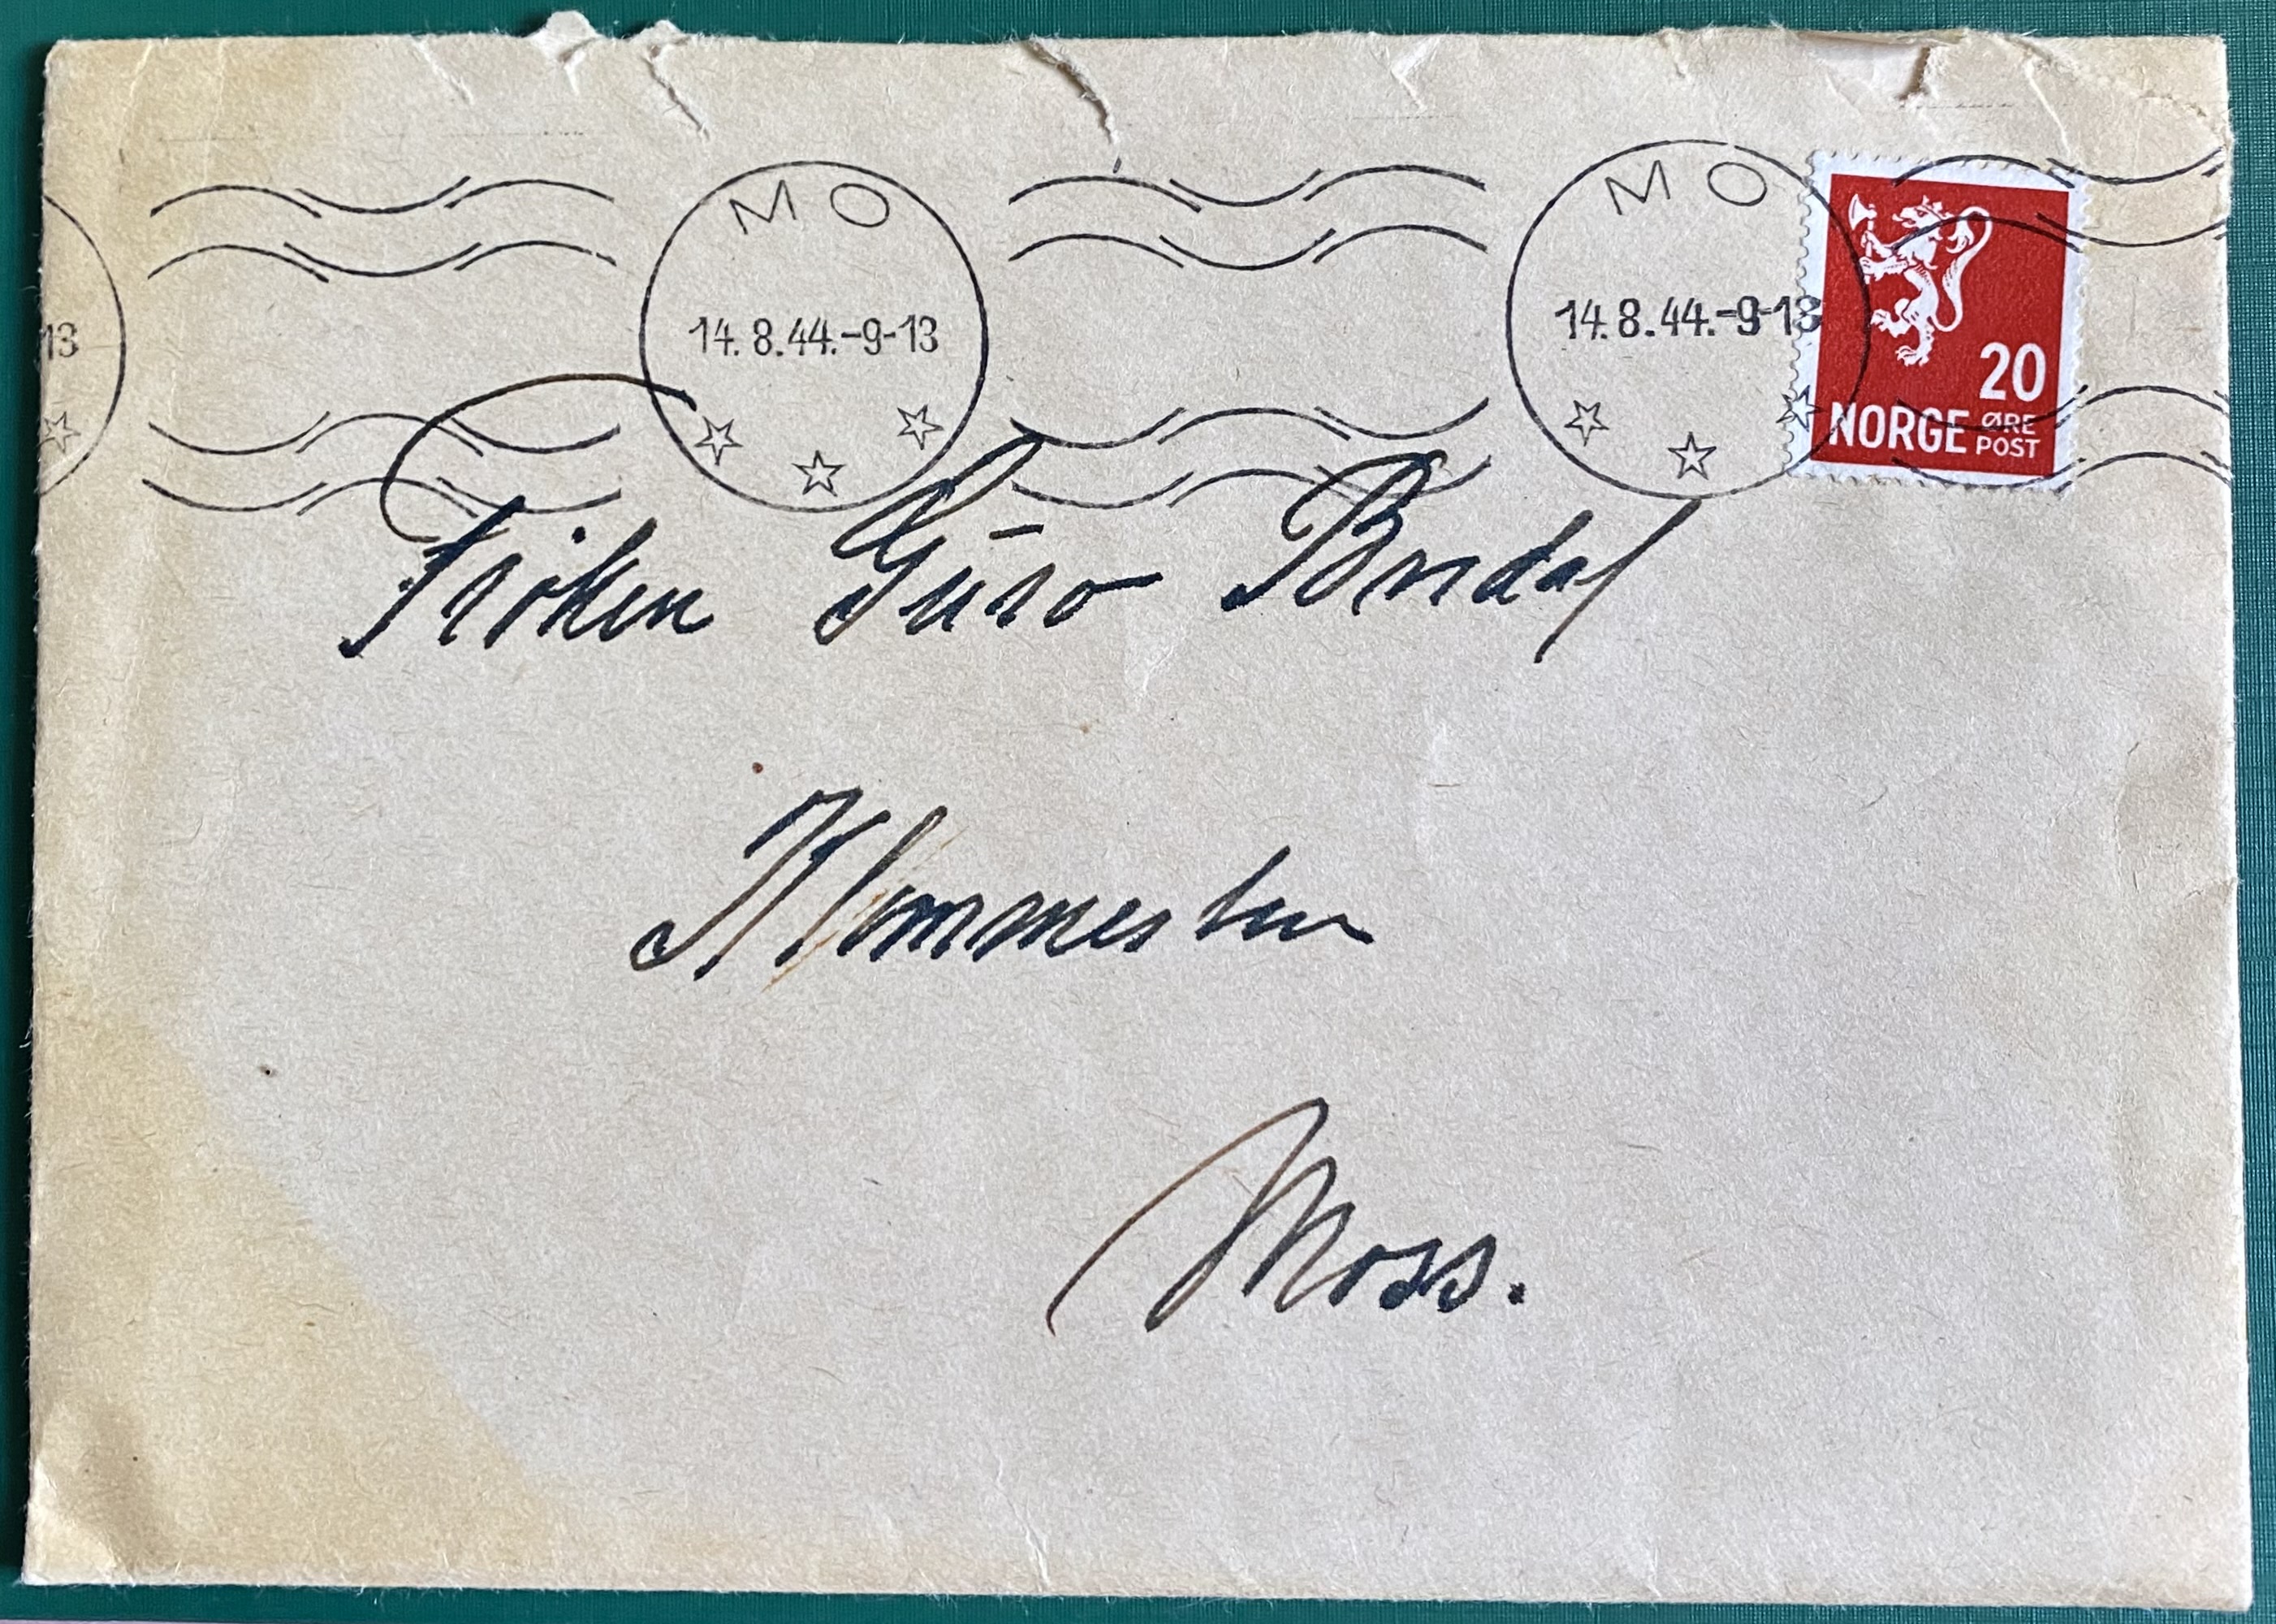 MO
MO
13
14.8.44.-9-13
14.8.44.-9-13
20
NORGE ØRE
POST
Frøken Guro
Moss.